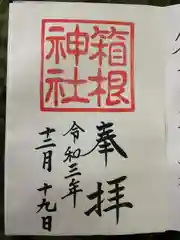 奉拝
箱根
神社
令和三年
十二月十九日